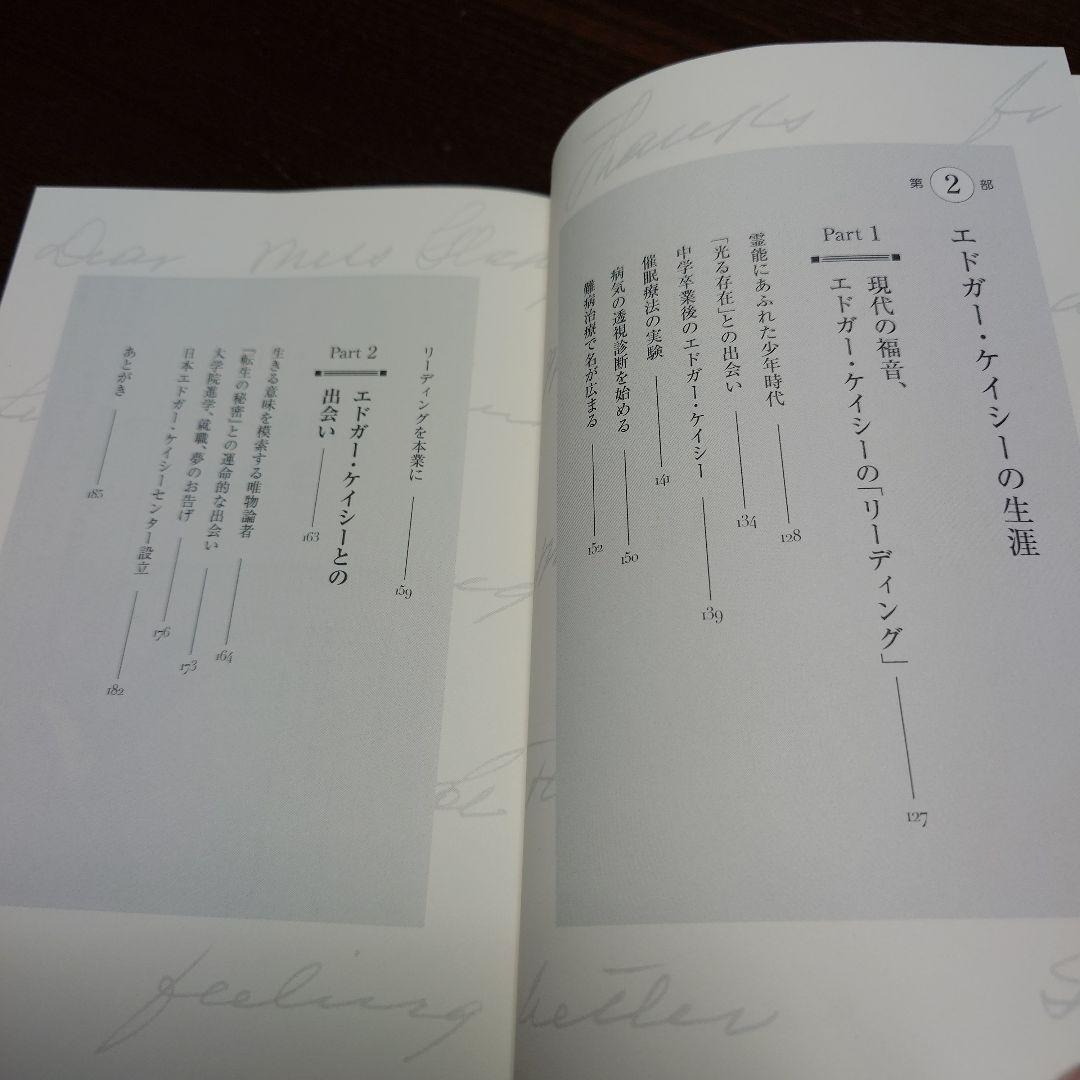 第2部
エドガー・ケイシーの生涯
Part 1
現代の福音、
エドガー・ケイシーの「リーディング」 127
霊能にあふれた少年時代 128
「光る存在」との出会い 134
中学卒業後のエドガー・ケイシー 139
催眠療法の実験 141
病気の透視診断を始める 150
難病治療で名が広まる 152
リーディングを本業に 159
Part 2
エドガー・ケイシーとの
出会い 163
生きる意味を模索する唯物論者 164
『転生の秘密』との運命的な出会い 173
大学院進学、就職、夢のお告げ 176
日本エドガー・ケイシーセンター設立 182
あとがき 185
Thanks
Dear
feeling better